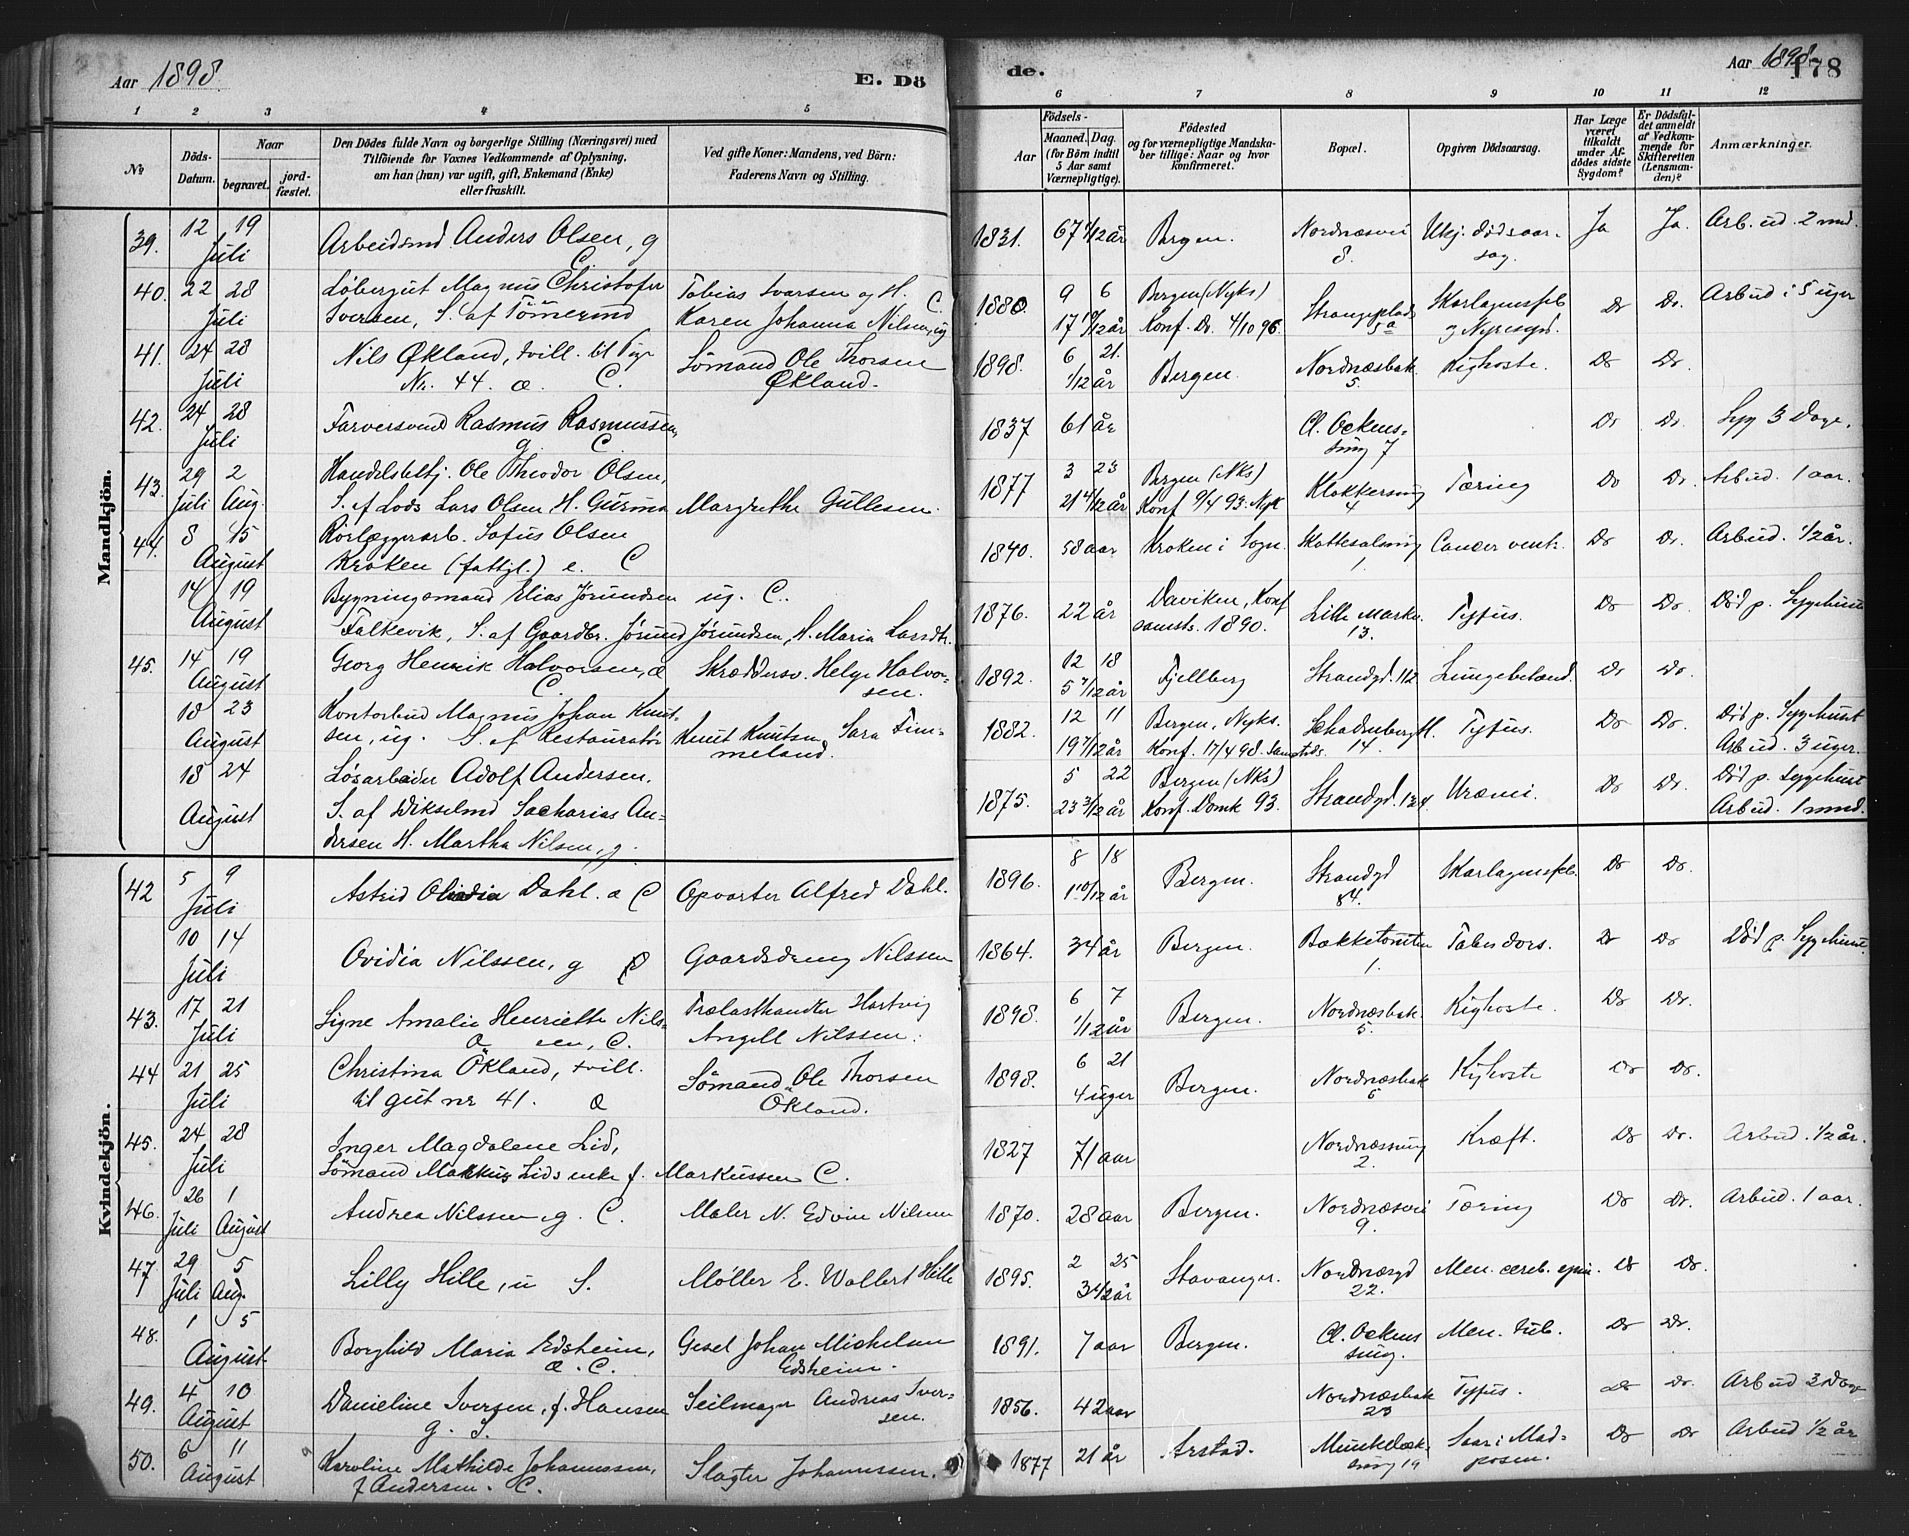 Aar 1898
E. Dö
de.
Aar 1898
178
1 2 3 4 5 6 7 8 9 10 11 12
No
Döds-Datum.
Naar
begravet.
jord-fæstet.
Den Dödes fulde Navn og borgerlige Stilling (Næringsvei) med
Tilföiende for Voxnes Vedkommende af Oplysning,
om han (hun) var ugift, gift, Enkemand (Enke)
eller fraskilt.
Ved gifte Koner: Mandens, ved Börn:
Faderens Navn og Stilling.
Födsels-
Aar
Maaned. Dag.
(for Börn indtil
5 Aar samt
Værnepligtige).
Födested
og for værnepligtige Mandska-
ber tillige: Naar og hvor
konfirmeret.
Bopæl.
Opgiven Dödsaarsag.
Har Læge
været
tilkaldt
under Af-
dödes sidste
Sygdom?
Er Dödsfal-
det anmeldt
af Vedkom-
mende for
Skifteretten
(Lensman-
den)?
Anmærkninger.
Mandkjön.
39. 12 19 Juli Arbeidsmd Anders Olsen, g C. 1831. 67 Bergen. Nordnæsvei 8. Ukj. dödsaarsag. Ja Ja. Arb. ud. 2 md.
40. 22 28 Juli Löbergut Magnus Christofer
Iversen, S. af Tömermd Tobias Ivarsen og H. C
Karen Johanna Nilsen, ug 1880 9 6 17 10/12 år Bergen (Nyks)
Konf. Do. 4/10 96. Strangeplads 5a Skarlagensfeb
og Nyresyd. Do Do. Arbud i 5 uger
41. 24 28 Juli Nils Økland, tvill. til Pige
Nr. 44. æ C. Sömand Ole Thorsen
Økland. 1898. 6 21. 1/12 år Bergen. Nordnæsbak. 5. Kighoste. Do Do.
42. 24 28 Juli Farversvend Rasmus Rasmussen,
g. C. 1837 61 år Cl. Ockens-
smug 7 Do Do. Syg 3 Dage.
43. 29 Juli 2 Aug. Handelsbetj. Ole Theodor Olsen,
S. af Lods Lars Olsen H. Gurina Margrethe Gullesen. 1877 3 23 21 4/12 år Bergen (Nks)
Konf 9/4 93. Nyk Klokkersmug 4 Tæring Do Do. Arbud. 1 aar.
44. 8 15 August Rörlæggerarb. Sofus Olsen
Kroken (fattgl.) e. C 1840. 58 aar Kroken i Sogn. Skottesalsmug 1. Cancer ventr. Do Do. Arbud. 1/2 år.
14 19 August Bygningsmand Elias Jörundsen ug. C.
Falkevik, S. af Gaardbr. Jörund Jörundsen, H. Maria Larsdtr. 1876. 22 år Daviken, Konf
samsts. 1890. Lille Marke. 13. Tyfus. Do Do. Död p. Sygehuset
45. 14 19 August Georg Henrik Halvorsen, æ
C. Skræddersv. Helge Halvor-
sen. 1892. 12 18 5 7/12 år Fjellberg Strandgd. 112 Lungebetænd. Do Do.
18 23 August Kontorbud Magnus Johan Knut-
sen, ug. S. af Restauratör Knut Knutsen, Sara Tim-
meland. 1882. 12 11 Bergen, Nyks.
Konf. 17/4 98. Samstds. 14. Tyfus. Do Do. Död p. Sygehuset
Arbud. 3 uger.
18 24 August Lösarbeider Adolf Andersen.
S. af Dikselmd Sacharias An-
dersen H. Martha Nilsen, g. 1875. 5 22 23 3/12 år Bergen (Nks)
Konf. Domk 93. Strandgd. 134 Uræmi. Do Do. Död p. Sygehuset
Arbud. 1 mnd.
Kvindekjön.
42 5 9 Juli Astrid Dahl. æ C Opvarter Alfred Dahl. 1896. 8 18 1 10/12 år Bergen. Strandgd 84. Skarlagensfeb. Do Do.
10 14 Juli Ovidia Nilssen, g C Gaardsdreng Nilssen 1864. 34 år Bergen. Bakketomten 1. Tabes dors. Do Do Död p. Sygehuset
43. 17 21 Juli Signe Amalie Henriette Nils-
æ sen, C. Trælasthandler Hartvig
Angell Nilssen. 1898. 6 7 1/12 år Bergen. Nordnæsbak. 5. Kighoste. Do Do.
44 21 25 Juli Christina Ökland, tvill.
til gut nr 41. æ Sömand Ole Thorsen
Ökland. 1898. 6 21 4 uger Bergen. Nordnæsbak 5 Kighoste Do Do.
45. 24 28 Juli Inger Magdalene Lid,
Sömand Markus Lids enke f. Markussen C. 1827 71 aar Nordnæssmug 2. Kræft. Do Do. Arbud. 1/2 år.
46. 26 Juli 1 August Andrea Nilssen, g. C. Maler N. Edvin Nilsen 1870. 28 aar Bergen. Nordnæsvei 9. Tæring Do Do. Arbud. 1 aar.
47. 29 Juli 5 Aug. Lilly Hille, u S. Møller E. Wollert Hille 1895. 2 25 Stavanger. Nordnæsgd 22. Men. cereb. spin. Do Do.
48. 1 5 August. Borghild Maria Edsheim,
æ. C. Gesel Johan Mickelsen
Edsheim. 1891. 7 aar Bergen. Cl. Ockens
smug. Men. tub. Do Do.
49. 4 10 August Danieline Iversen, f. Hansen
g. S. Seilmager Andreas Iver-
sen. 1856. 42 aar Nordnæsbak 23 Tyfus. Do Do. Arbud 3 Dage
50. 6 11 August Karoline Mathilde Johannssen,
f Andersen. C. Slagter Johannssen. 1877 21 år Årstad. 19 Do Do Arbud 1/2 år